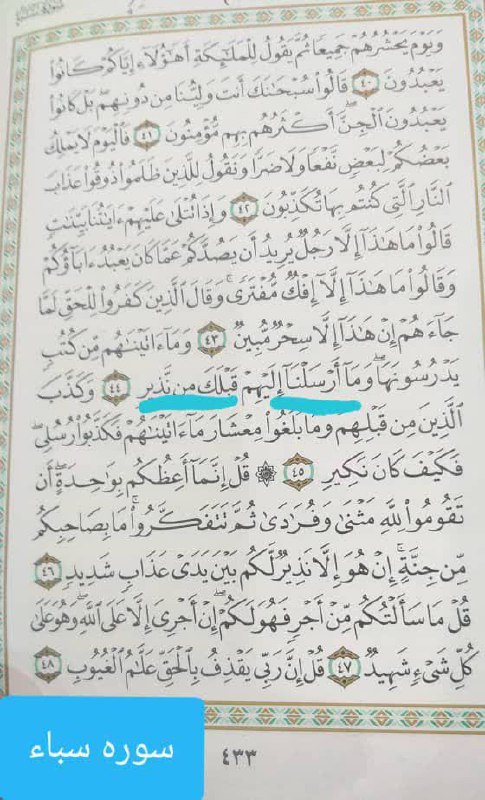 وَيَوْمَ يَحْشُرُهُمْ جَمِيعًا ثُمَّ يَقُولُ لِلْمَلَٰٓئِكَةِ أَهَٰٓؤُلَآءِ إِيَّاكُمْ كَانُوا۟
يَعْبُدُونَ ٤٠ قَالُوا۟ سُبْحَٰنَكَ أَنتَ وَلِيُّنَا مِن دُونِهِم بَلْ كَانُوا۟
يَعْبُدُونَ ٱلْجِنَّ أَكْثَرُهُم بِهِم مُّؤْمِنُونَ ٤١ فَٱلْيَوْمَ لَا يَمْلِكُ
بَعْضُكُمْ لِبَعْضٍ نَّفْعًا وَلَا ضَرًّا وَنَقُولُ لِلَّذِينَ ظَلَمُوا۟ ذُوقُوا۟ عَذَابَ
ٱلنَّارِ ٱلَّتِى كُنتُم بِهَا تُكَذِّبُونَ ٤٢ وَإِذَا تُتْلَىٰ عَلَيْهِمْ ءَايَٰتُنَا بَيِّنَٰتٍ
قَالُوا۟ مَا هَٰذَآ إِلَّا رَجُلٌ يُرِيدُ أَن يَصُدَّكُمْ عَمَّا كَانَ يَعْبُدُ ءَابَآؤُكُمْ
وَقَالُوا۟ مَا هَٰذَآ إِلَّآ إِفْكٌ مُّفْتَرًى وَقَالَ ٱلَّذِينَ كَفَرُوا۟ لِلْحَقِّ لَمَّا
جَآءَهُمْ إِنْ هَٰذَآ إِلَّا سِحْرٌ مُّبِينٌ ٤٣ وَمَآ ءَاتَيْنَٰهُم مِّن كُتُبٍ
يَدْرُسُونَهَا وَمَآ أَرْسَلْنَآ إِلَيْهِمْ قَبْلَكَ مِن نَّذِيرٍ ٤٤ وَكَذَّبَ
ٱلَّذِينَ مِن قَبْلِهِمْ وَمَا بَلَغُوا۟ مِعْشَارَ مَآ ءَاتَيْنَٰهُمْ فَكَذَّبُوا۟ رُسُلِى
فَكَيْفَ كَانَ نَكِيرِ ٤٥ ۞ قُلْ إِنَّمَآ أَعِظُكُم بِوَٰحِدَةٍ أَن
تَقُومُوا۟ لِلَّهِ مَثْنَىٰ وَفُرَٰدَىٰ ثُمَّ تَتَفَكَّرُوا۟ مَا بِصَاحِبِكُم
مِّن جِنَّةٍ إِنْ هُوَ إِلَّا نَذِيرٌ لَّكُم بَيْنَ يَدَىْ عَذَابٍ شَدِيدٍ ٤٦
قُلْ مَا سَأَلْتُكُم مِّنْ أَجْرٍ فَهُوَ لَكُمْ إِنْ أَجْرِىَ إِلَّا عَلَى ٱللَّهِ وَهُوَ عَلَىٰ
كُلِّ شَىْءٍ شَهِيدٌ ٤٧ قُلْ إِنَّ رَبِّى يَقْذِفُ بِٱلْحَقِّ عَلَّٰمُ ٱلْغُيُوبِ ٤٨
٤٣٣
سوره سباء